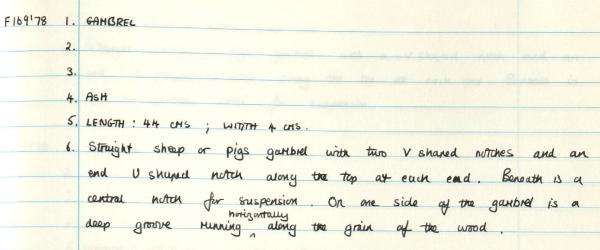 F169'78 1. GAMBREL
2.
3.
4. ASH
5. LENGTH : 44 CMS ; WIDTH 4 CMS.
6. Straight sheep or pigs gambrel with two V shaped notches and an
end U shaped notch along the top at each end. Beneath is a
central notch for suspension. On one side of the gambrel is a
deep groove running horizontally along the grain of the wood.